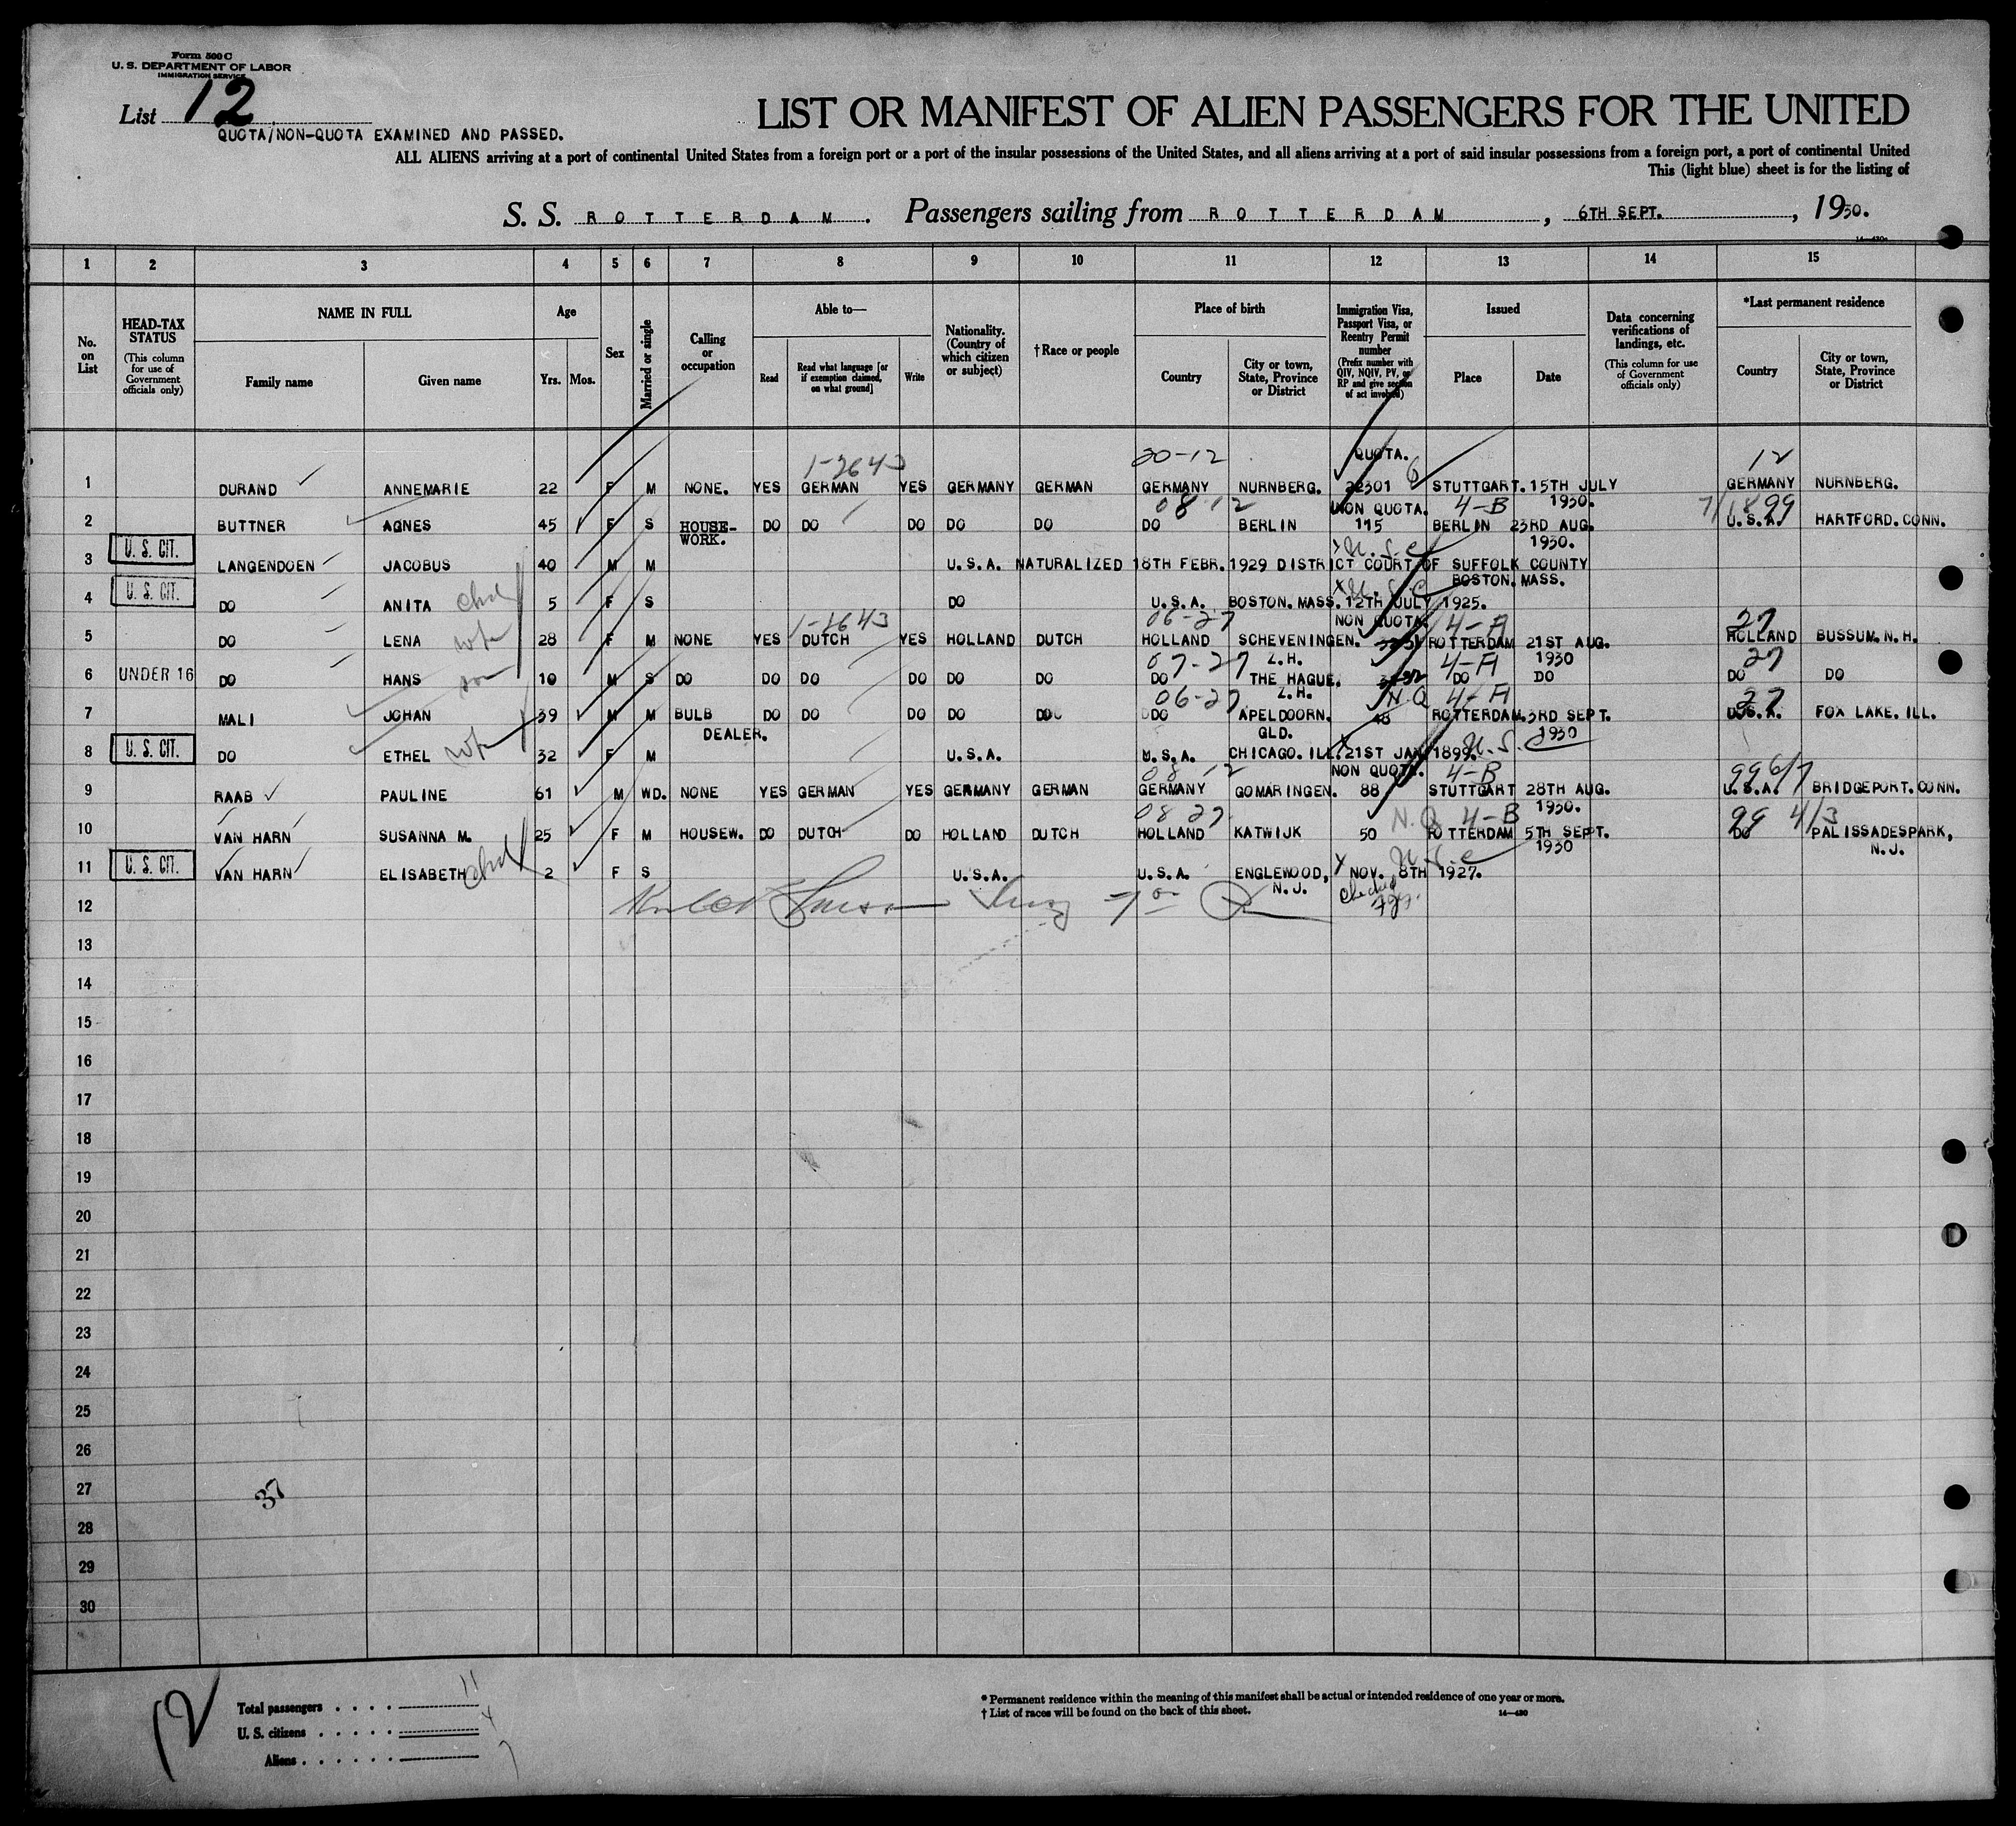 Form 500 C
U. S. DEPARTMENT OF LABOR
IMMIGRATION SERVICE
List 12
QUOTA/NON-QUOTA EXAMINED AND PASSED.
LIST OR MANIFEST OF ALIEN PASSENGERS FOR THE UNITED
ALL ALIENS arriving at a port of continental United States from a foreign port or a port of the insular possessions of the United States, and all aliens arriving at a port of said insular possessions from a foreign port, a port of continental United
This (light blue) sheet is for the listing of
S. S. ROTTERDAM. Passengers sailing from ROTTERDAM, 6TH SEPT., 1930.
1 2 3 4 5 6 7 8 9 10 11 12 13 14 15
No. on List
HEAD-TAX STATUS
(This column for use of Government officials only)
NAME IN FULL
Family name
Given name
Age
Yrs.
Mos.
Sex
Married or single
Calling or occupation
Able to—
Read
Read what language [or if exemption claimed, on what ground]
Write
Nationality. (Country of which citizen or subject)
†Race or people
Place of birth
Country
City or town, State, Province or District
Immigration Visa, Passport Visa, or Reentry Permit number
(Prefix number with QIV, NQIV, PV, or RP and give section of act involved)
Issued
Place
Date
Data concerning verifications of landings, etc.
(This column for use of Government officials only)
*Last permanent residence
Country
City or town, State, Province or District
1-2643 20-12 QUOTA. 6 12
1 DURAND ANNEMARIE 22 F M NONE. YES GERMAN YES GERMANY GERMAN GERMANY NURNBERG. 22301 STUTTGART. 15TH JULY GERMANY NURNBERG.
08 12 NON QUOTA. 4-B 1930. 99
2 BUTTNER AGNES 45 F S HOUSE-WORK. DO DO DO DO DO DO BERLIN 115 BERLIN 23RD AUG. U.S.A. HARTFORD. CONN.
1930.
U. S. CIT. U.S.C
3 LANGENDOEN JACOBUS 40 M M U.S.A. NATURALIZED 18TH FEBR. 1929 DISTRICT COURT OF SUFFOLK COUNTY
BOSTON. MASS.
U. S. CIT. U.S.C
4 DO ANITA chd 5 F S DO U.S.A. BOSTON. MASS. 12TH JULY 1925.
1-2643 06-27 NON QUOTA 4-A 27
5 DO LENA wfe 28 F M NONE YES DUTCH YES HOLLAND DUTCH HOLLAND SCHEVENINGEN. ROTTERDAM 21ST AUG. HOLLAND BUSSUM. N.H.
07-27 Z.H. 4-A 1930 27
6 UNDER 16 DO HANS son 10 M S DO DO DO DO DO DO DO THE HAGUE. DO DO DO DO
06-27 Z.H. N.Q 4-A 27
7 MALI JOHAN 39 M M BULB DEALER. DO DO DO DO DO DO APELDOORN. GLD. 48 ROTTERDAM. 3RD SEPT. 1930 U.S.A. FOX LAKE. ILL.
U. S. CIT.
8 DO ETHEL wfe 32 F M U.S.A. U.S.A. CHICAGO. ILL. 21ST JAN. 1899. U.S.C
08 12 NON QUOTA. 4-B 99 6/7
9 RAAB PAULINE 61 M WD. NONE YES GERMAN YES GERMANY GERMAN GERMANY GOMARINGEN. 88 STUTTGART 28TH AUG. U.S.A. BRIDGEPORT. CONN.
08 27 N.Q 4-B 1930. 99 4/3
10 VAN HARN SUSANNA M. 25 F M HOUSEW. DO DUTCH DO HOLLAND DUTCH HOLLAND KATWIJK 50 ROTTERDAM 5TH SEPT. DO PALISSADESPARK, N.J.
1930
U. S. CIT. U.S.C
11 VAN HARN ELISABETH chd 2 F S U.S.A. U.S.A. ENGLEWOOD, N.J. NOV. 8TH 1927.
checked
12
13
14
15
16
17
18
19
20
21
22
23
24
25
26
27
37
28
29
30
12
Total passengers 11
U. S. citizens 4
Aliens 7
* Permanent residence within the meaning of this manifest shall be actual or intended residence of one year or more.
† List of races will be found on the back of this sheet.
14—430